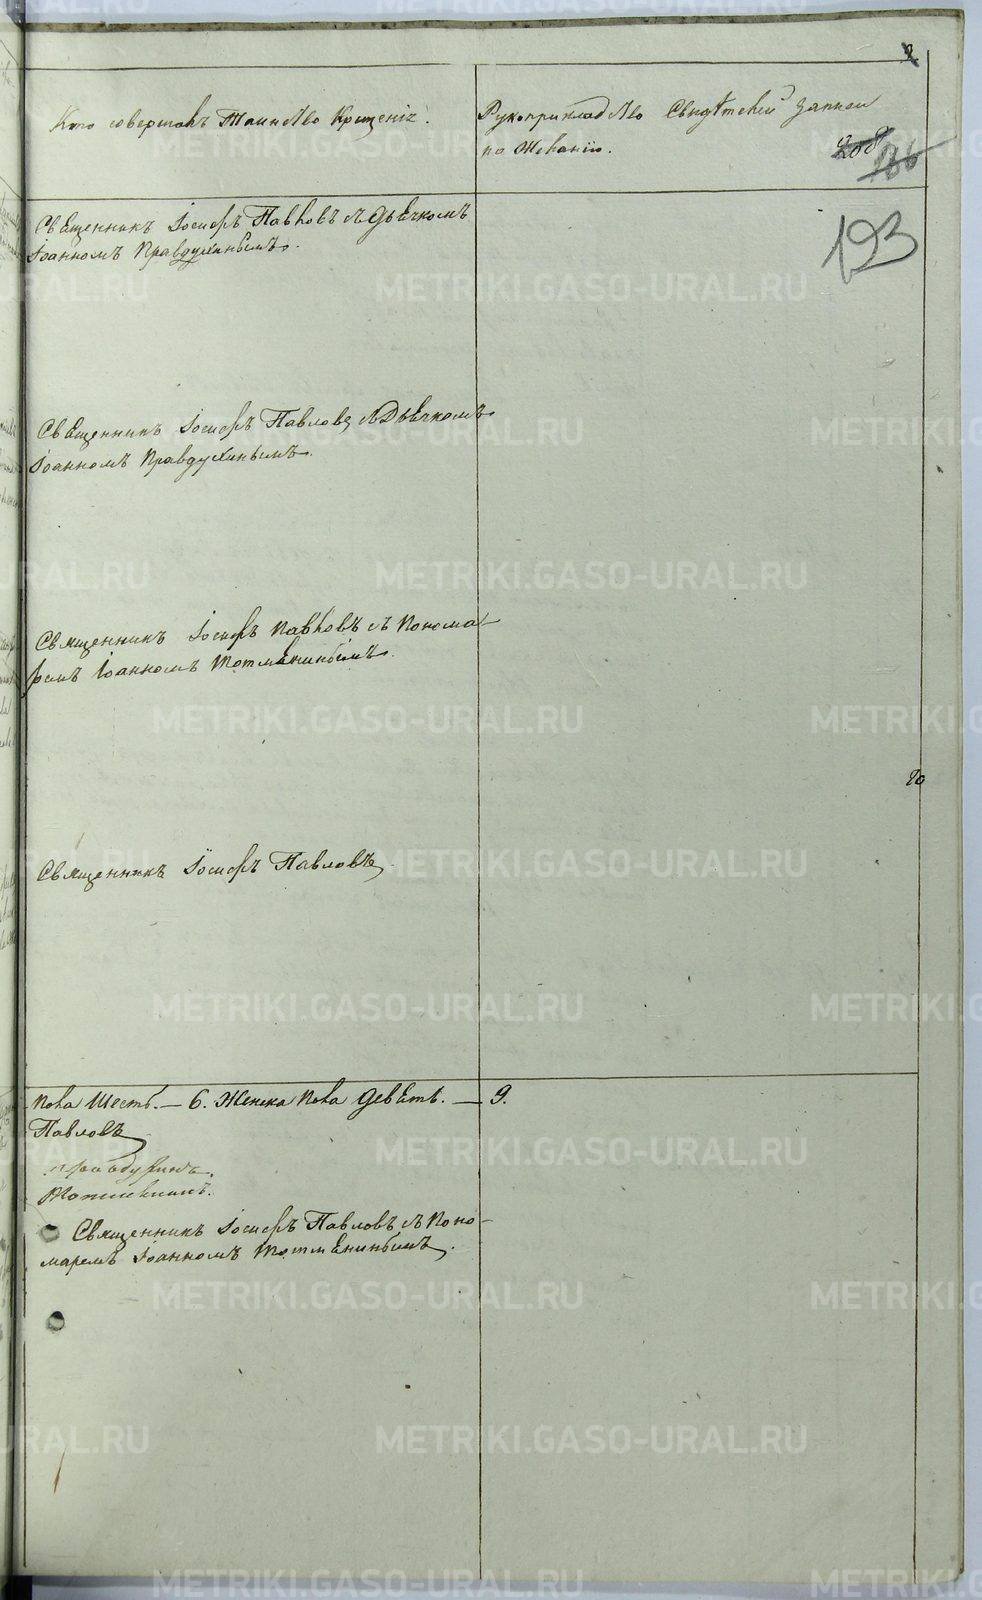 Кто совершалъ Таинство Крещенія.
Рукоприкладство Свидѣтелей записи
по Желанію.
208
186
193
Священникъ Іосифъ Павловъ съ Дьячкомъ
Іоанномъ Правдухинымъ.
Священникъ Іосифъ Павловъ съ Дьячкомъ
Іоанномъ Правдухинымъ.
Священникъ Іосифъ Павловъ съ Понома-
ремъ Іоанномъ Тотмѣнинымъ.
20
Священникъ Іосифъ Павловъ
пола Шесть. — 6. Женска пола Девять. — 9.
Павловъ
Правдухинъ.
Священникъ Іосифъ Павловъ съ Поно-
маремъ Іоанномъ Тотмѣнинымъ.
METRIKI.GASO-URAL.RU